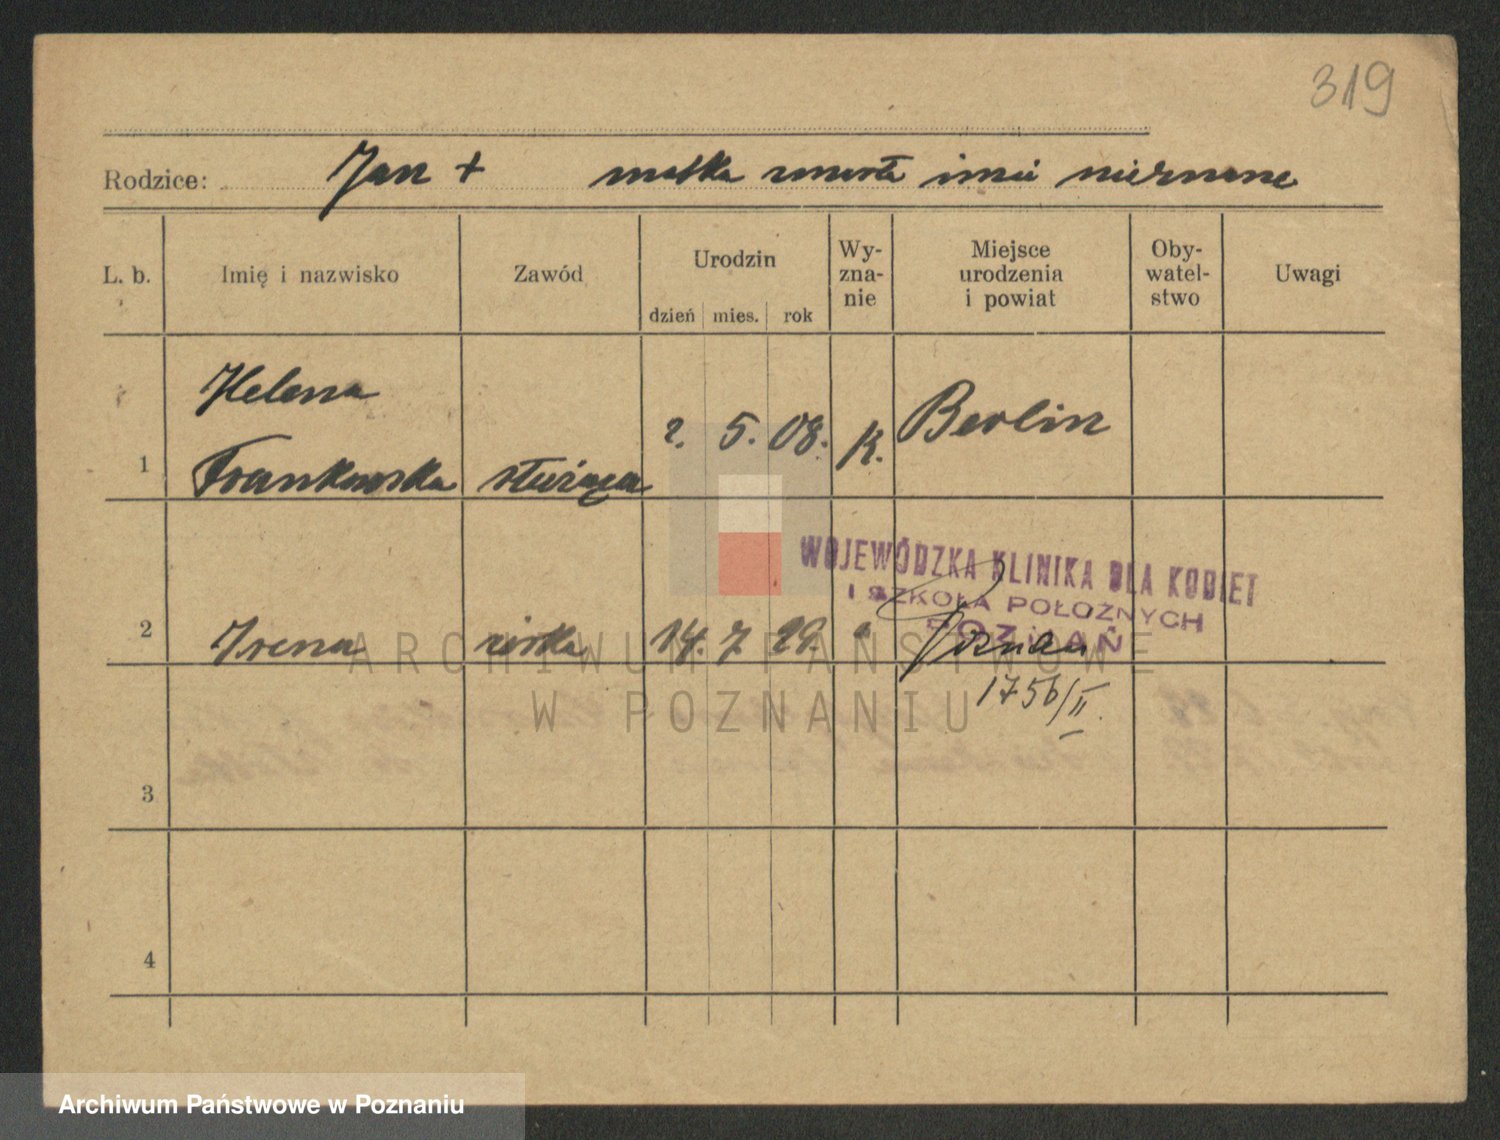 319
Rodzice: Jan + matka zmarła imię nieznane
L. b. Imię i nazwisko Zawód Urodzin dzień mies. rok Wy-zna-nie Miejsce urodzenia i powiat Oby-watel-stwo Uwagi
Helena
1 Frankowska służąca 2. 5. 08. K. Berlin
WOJEWÓDZKA KLINIKA DLA KOBIET
I SZKOŁA POŁOŻNYCH
POZNAŃ
2 Irena córka 14. 7 29. " Poznań
1756/II.
3
4
ARCHIWUM PAŃSTWOWE
W POZNANIU
Archiwum Państwowe w Poznaniu